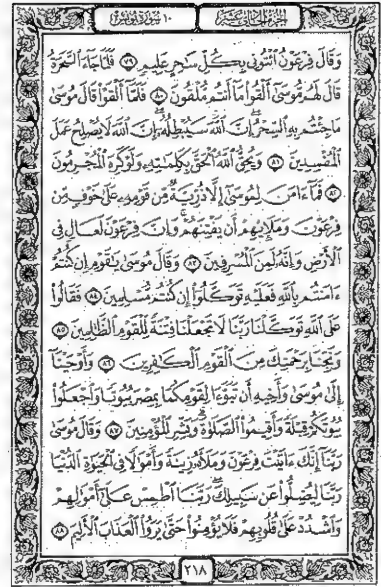 الجزء الحادي عشر ١٠ سورة يونس
وَقَالَ فِرْعَوْنُ ٱئْتُونِى بِكُلِّ سَـٰحِرٍ عَلِيمٍ ٧٩ فَلَمَّا جَآءَ ٱلسَّحَرَةُ
قَالَ لَهُم مُّوسَىٰٓ أَلْقُوا۟ مَآ أَنتُم مُّلْقُونَ ٨٠ فَلَمَّآ أَلْقَوْا۟ قَالَ مُوسَىٰ
مَا جِئْتُم بِهِ ٱلسِّحْرُ إِنَّ ٱللَّهَ سَيُبْطِلُهُۥٓ إِنَّ ٱللَّهَ لَا يُصْلِحُ عَمَلَ
ٱلْمُفْسِدِينَ ٨١ وَيُحِقُّ ٱللَّهُ ٱلْحَقَّ بِكَلِمَـٰتِهِۦ وَلَوْ كَرِهَ ٱلْمُجْرِمُونَ
٨٢ فَمَآ ءَامَنَ لِمُوسَىٰٓ إِلَّا ذُرِّيَّةٌ مِّن قَوْمِهِۦ عَلَىٰ خَوْفٍ مِّن
فِرْعَوْنَ وَمَلَإِي۟هِمْ أَن يَفْتِنَهُمْ وَإِنَّ فِرْعَوْنَ لَعَالٍ فِى
ٱلْأَرْضِ وَإِنَّهُۥ لَمِنَ ٱلْمُسْرِفِينَ ٨٣ وَقَالَ مُوسَىٰ يَـٰقَوْمِ إِن كُنتُمْ
ءَامَنتُم بِٱللَّهِ فَعَلَيْهِ تَوَكَّلُوٓا۟ إِن كُنتُم مُّسْلِمِينَ ٨٤ فَقَالُوا۟
عَلَى ٱللَّهِ تَوَكَّلْنَا رَبَّنَا لَا تَجْعَلْنَا فِتْنَةً لِّلْقَوْمِ ٱلظَّـٰلِمِينَ ٨٥
وَنَجِّنَا بِرَحْمَتِكَ مِنَ ٱلْقَوْمِ ٱلْكَـٰفِرِينَ ٨٦ وَأَوْحَيْنَآ
إِلَىٰ مُوسَىٰ وَأَخِيهِ أَن تَبَوَّءَا لِقَوْمِكُمَا بِمِصْرَ بُيُوتًا وَٱجْعَلُوا۟
بُيُوتَكُمْ قِبْلَةً وَأَقِيمُوا۟ ٱلصَّلَوٰةَ وَبَشِّرِ ٱلْمُؤْمِنِينَ ٨٧ وَقَالَ مُوسَىٰ
رَبَّنَآ إِنَّكَ ءَاتَيْتَ فِرْعَوْنَ وَمَلَأَهُۥ زِينَةً وَأَمْوَٰلًا فِى ٱلْحَيَوٰةِ ٱلدُّنْيَا
رَبَّنَا لِيُضِلُّوا۟ عَن سَبِيلِكَ رَبَّنَا ٱطْمِسْ عَلَىٰٓ أَمْوَٰلِهِمْ
وَٱشْدُدْ عَلَىٰ قُلُوبِهِمْ فَلَا يُؤْمِنُوا۟ حَتَّىٰ يَرَوُا۟ ٱلْعَذَابَ ٱلْأَلِيمَ ٨٨
٢١٨